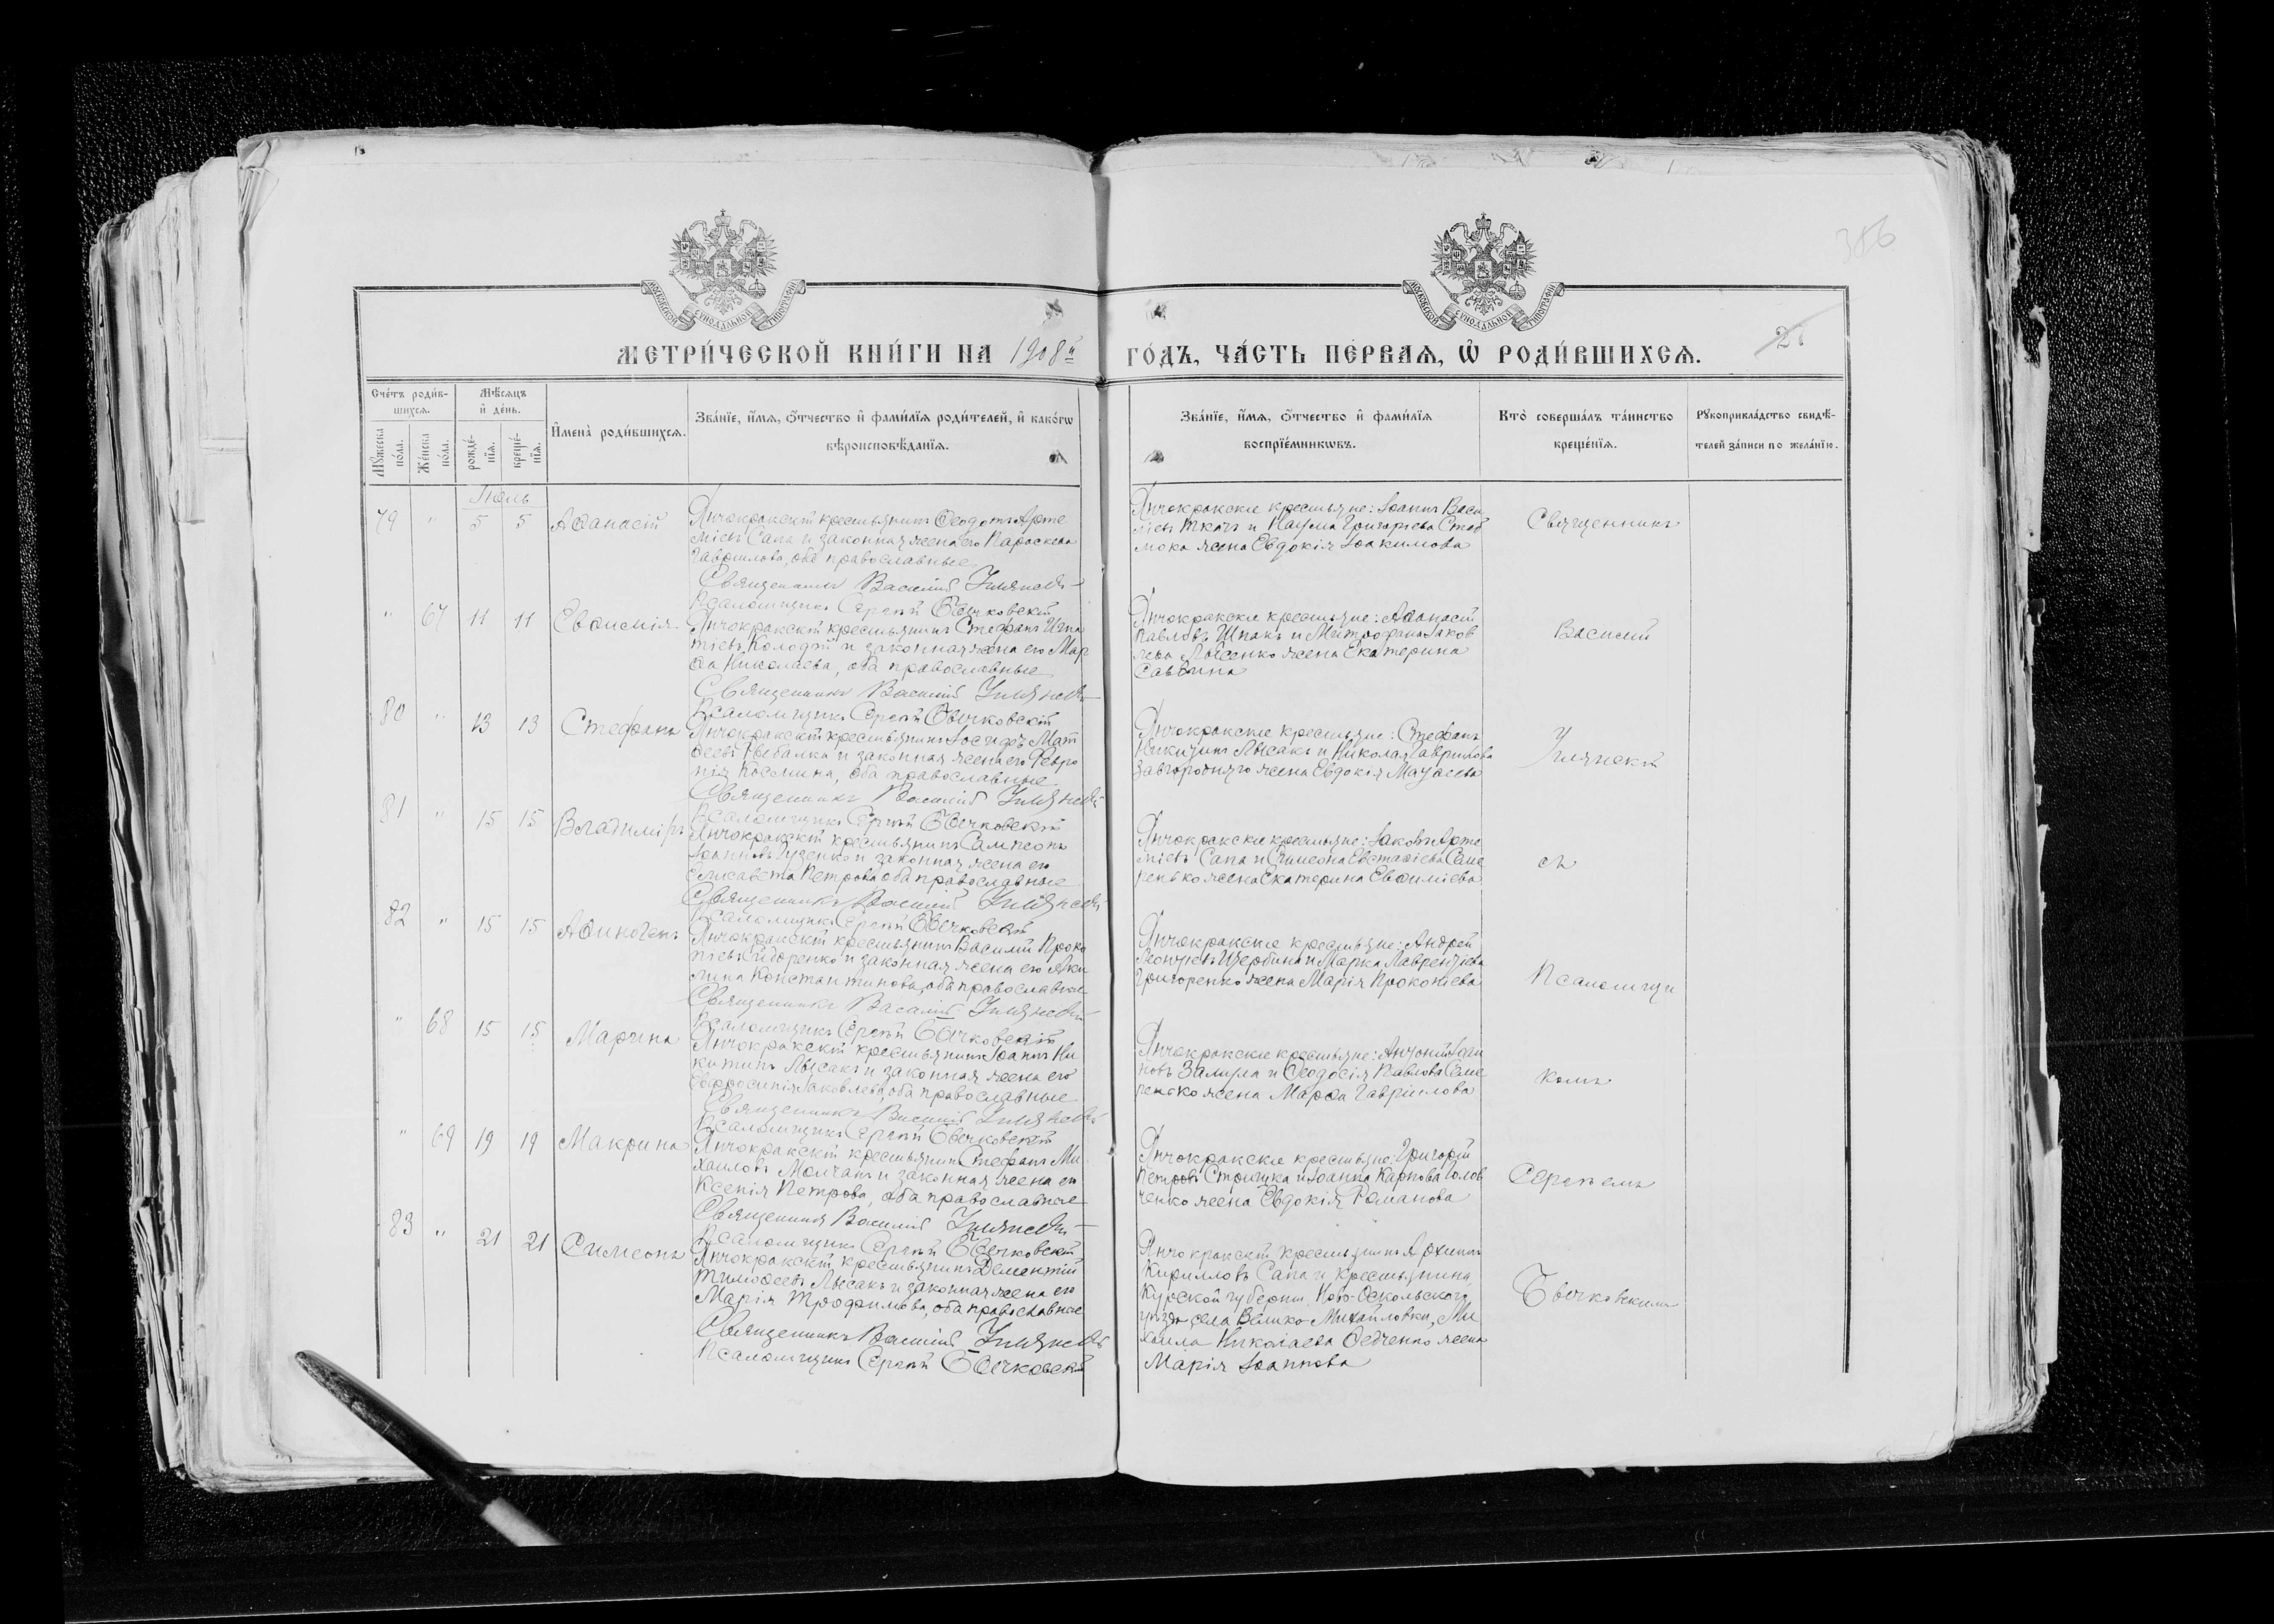 386
МОСКОВСКОЙ СѴНОДАЛЬНОЙ ТИПОГРАФІИ
МОСКОВСКОЙ СѴНОДАЛЬНОЙ ТИПОГРАФІИ
МЕТРИ́ЧЕСКОЙ КНИ́ГИ НА 1908й ГО́ДЪ, ЧА́СТЬ ПЕ́РВАѦ, Ѡ҆ РОДИ́ВШИХСѦ.
Сче́тъ роди́в-
шихсѧ.
Мꙋжеска по́ла.
Же́нска по́ла.
Мѣ́сѧцъ
и҆ де́нь.
рожде́-
нїѧ.
креще́-
нїѧ.
И҆мена̀ роди́вшихсѧ.
Зва́нїе, и҆́мѧ, ѻ҆́тчество и҆ фами́лїѧ роди́телей, и҆ како́гѡ
вѣроисповѣ́данїѧ.
Зва́нїе, и҆́мѧ, ѻ҆́тчество и҆ фами́лїѧ
воспрїе́мникѡвъ.
Кто̀ соверша́лъ та́инство
креще́нїѧ.
Рꙋкоприкла́дство свидѣ́-
телей за́писи по жела́нїю.
Іюль
79 " 5 5 Аѳанасій
Янчокракскій крестьянинъ Ѳеодотъ Арте
міевъ Сапа и законная жена его Параскева
Гавріилова, оба православные
Священникъ Василій
Псаломщикъ Сергѣй Овечковскій
Янчокракскіе крестьяне: Іоаннъ Васи
ліевъ Ткачъ и Наума Григорьева
жена Евдокія Іоакимова
Священникъ
" 67 11 11 Евѳимія
Янчокракскій крестьянинъ Стефанъ Игна
тіевъ Колодій и законная жена его Мар
ѳа Николаева, оба православные
Священникъ Василій
Псаломщикъ Сергѣй Овечковскій
Янчокракскіе крестьяне: Аѳанасій
Павловъ Шпакъ и Митрофана Іаков
лева Лысенко жена Екатерина
Саввина
Василій
80 " 13 13 Стефанъ
Янчокракскій крестьянинъ Іосифъ Мат
ѳеевъ Рыбалка и законная жена его Февро
нія Космина, оба православные
Священникъ Василій
Псаломщикъ Сергѣй Овечковскій
Янчокракскіе крестьяне: Стефанъ
Никитинъ Лысакъ и Николая Гаврилова
Завгородняго жена Евдокія
81 " 15 15 Владиміръ
Янчокракскій крестьянинъ Сампсонъ
Іоанновъ Гузенко и законная жена его
Елисавета Петрова оба православные
Священникъ Василій
Псаломщикъ Сергѣй Овечковскій
Янчокракскіе крестьяне: Іаковъ Арте
міевъ Сапа и Симеона Евстаѳіева Семе
ренько жена Екатерина Евѳиміева
съ
82 " 15 15 Аѳиногенъ
Янчокракскій крестьянинъ Василій Проко
піевъ Сидоренко и законная жена его Аки
лина Константинова, оба православные
Священникъ Василій
Псаломщикъ Сергѣй Овечковскій
Янчокракскіе крестьяне: Андрей
Леонтіевъ Щербина и Марка Лаврентіева
Григоренко жена Марія Прокопіева
Псаломщи
" 68 15 15 Марина
Янчокракскій крестьянинъ Іоаннъ Ни
китинъ Лысакъ и законная жена его
Евфросинія Іаковлева, оба православные
Священникъ Василій
Псаломщикъ Сергѣй Овечковскій
Янчокракскіе крестьяне: Антоній Іоан
новъ и Ѳеодосія Павлова Семе
ренько жена Марѳа Гавріилова
комъ
" 69 19 19 Макрина
Янчокракскій крестьянинъ Стефанъ Ми
хаиловъ Молчанъ и законная жена его
Ксенія Петрова, оба православные
Священникъ Василій
Псаломщикъ Сергѣй Овечковскій
Янчокракскіе крестьяне: Григорій
Петровъ и Іоанна Карпова Голов
ченко жена Евдокія Романова
Сергѣемъ
83 " 21 21 Симеонъ
Янчокракскій крестьянинъ Дементій
Тимоѳеевъ Лысакъ и законная жена его
Марія Трофимова, оба православные
Священникъ Василій
Псаломщикъ Сергѣй Овечковскій
Янчокракскій крестьянинъ
Кирилловъ Сапа и крестьянина
Курской губерніи Ново-Оскольскаго
уѣзда села Велико Михайловки, Ми
хаила Николаева Ѳедченко жена
Марія Іоаннова
Овечковскимъ